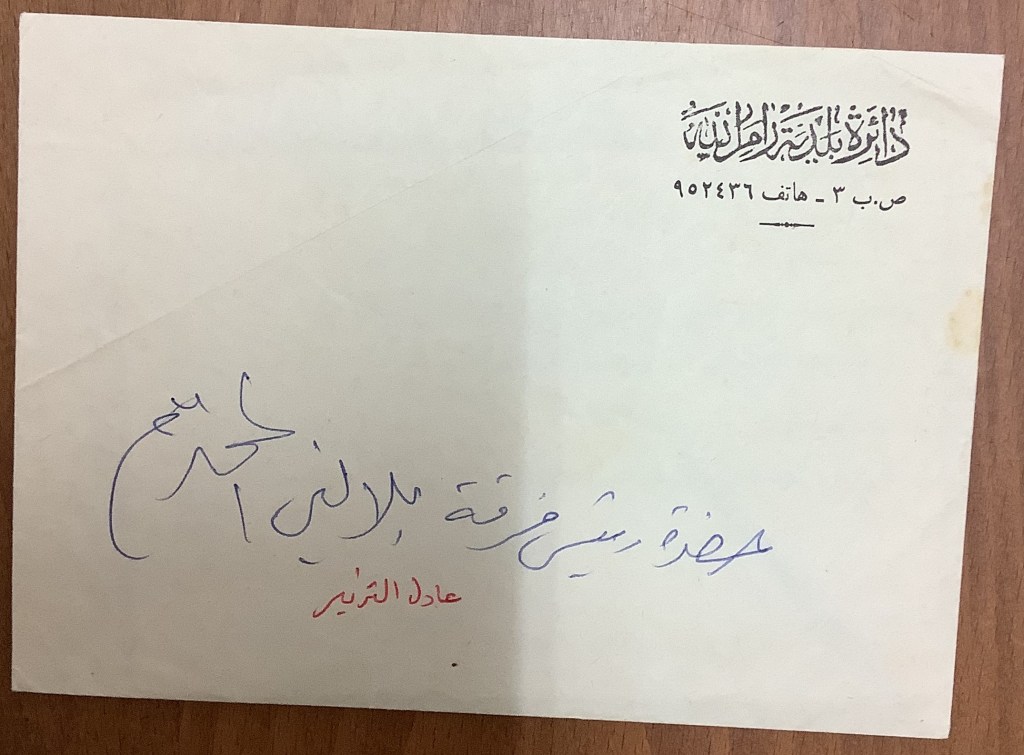 دائرة بلدية رام الله
ص.ب ٣ - هاتف ٩٥٢٤٣٦
حضرة رئيس فرقة بلالين المحترم
عادل الترتير